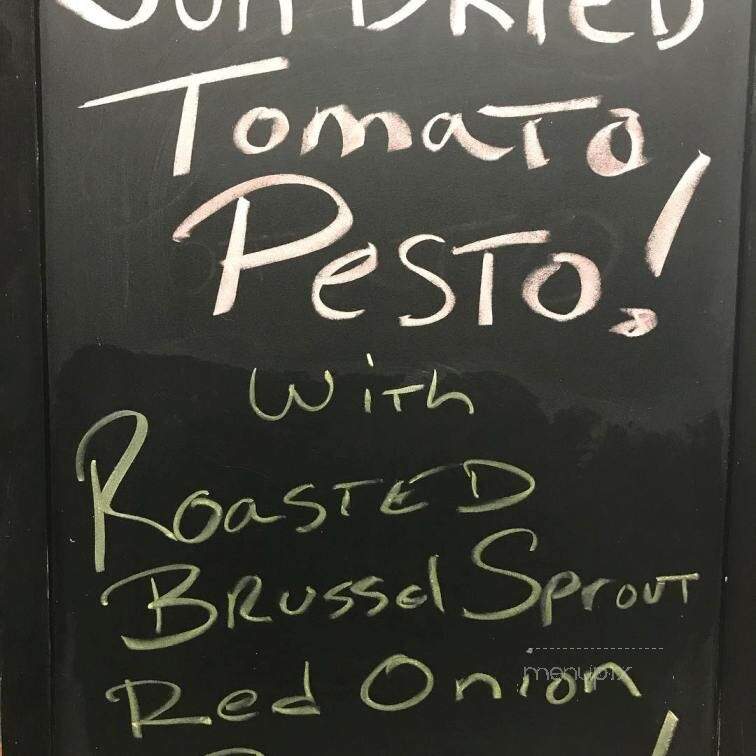 Sun DRIED
Tomato
Pesto!
with
Roasted
Brussel Sprout
Red Onion
menupix